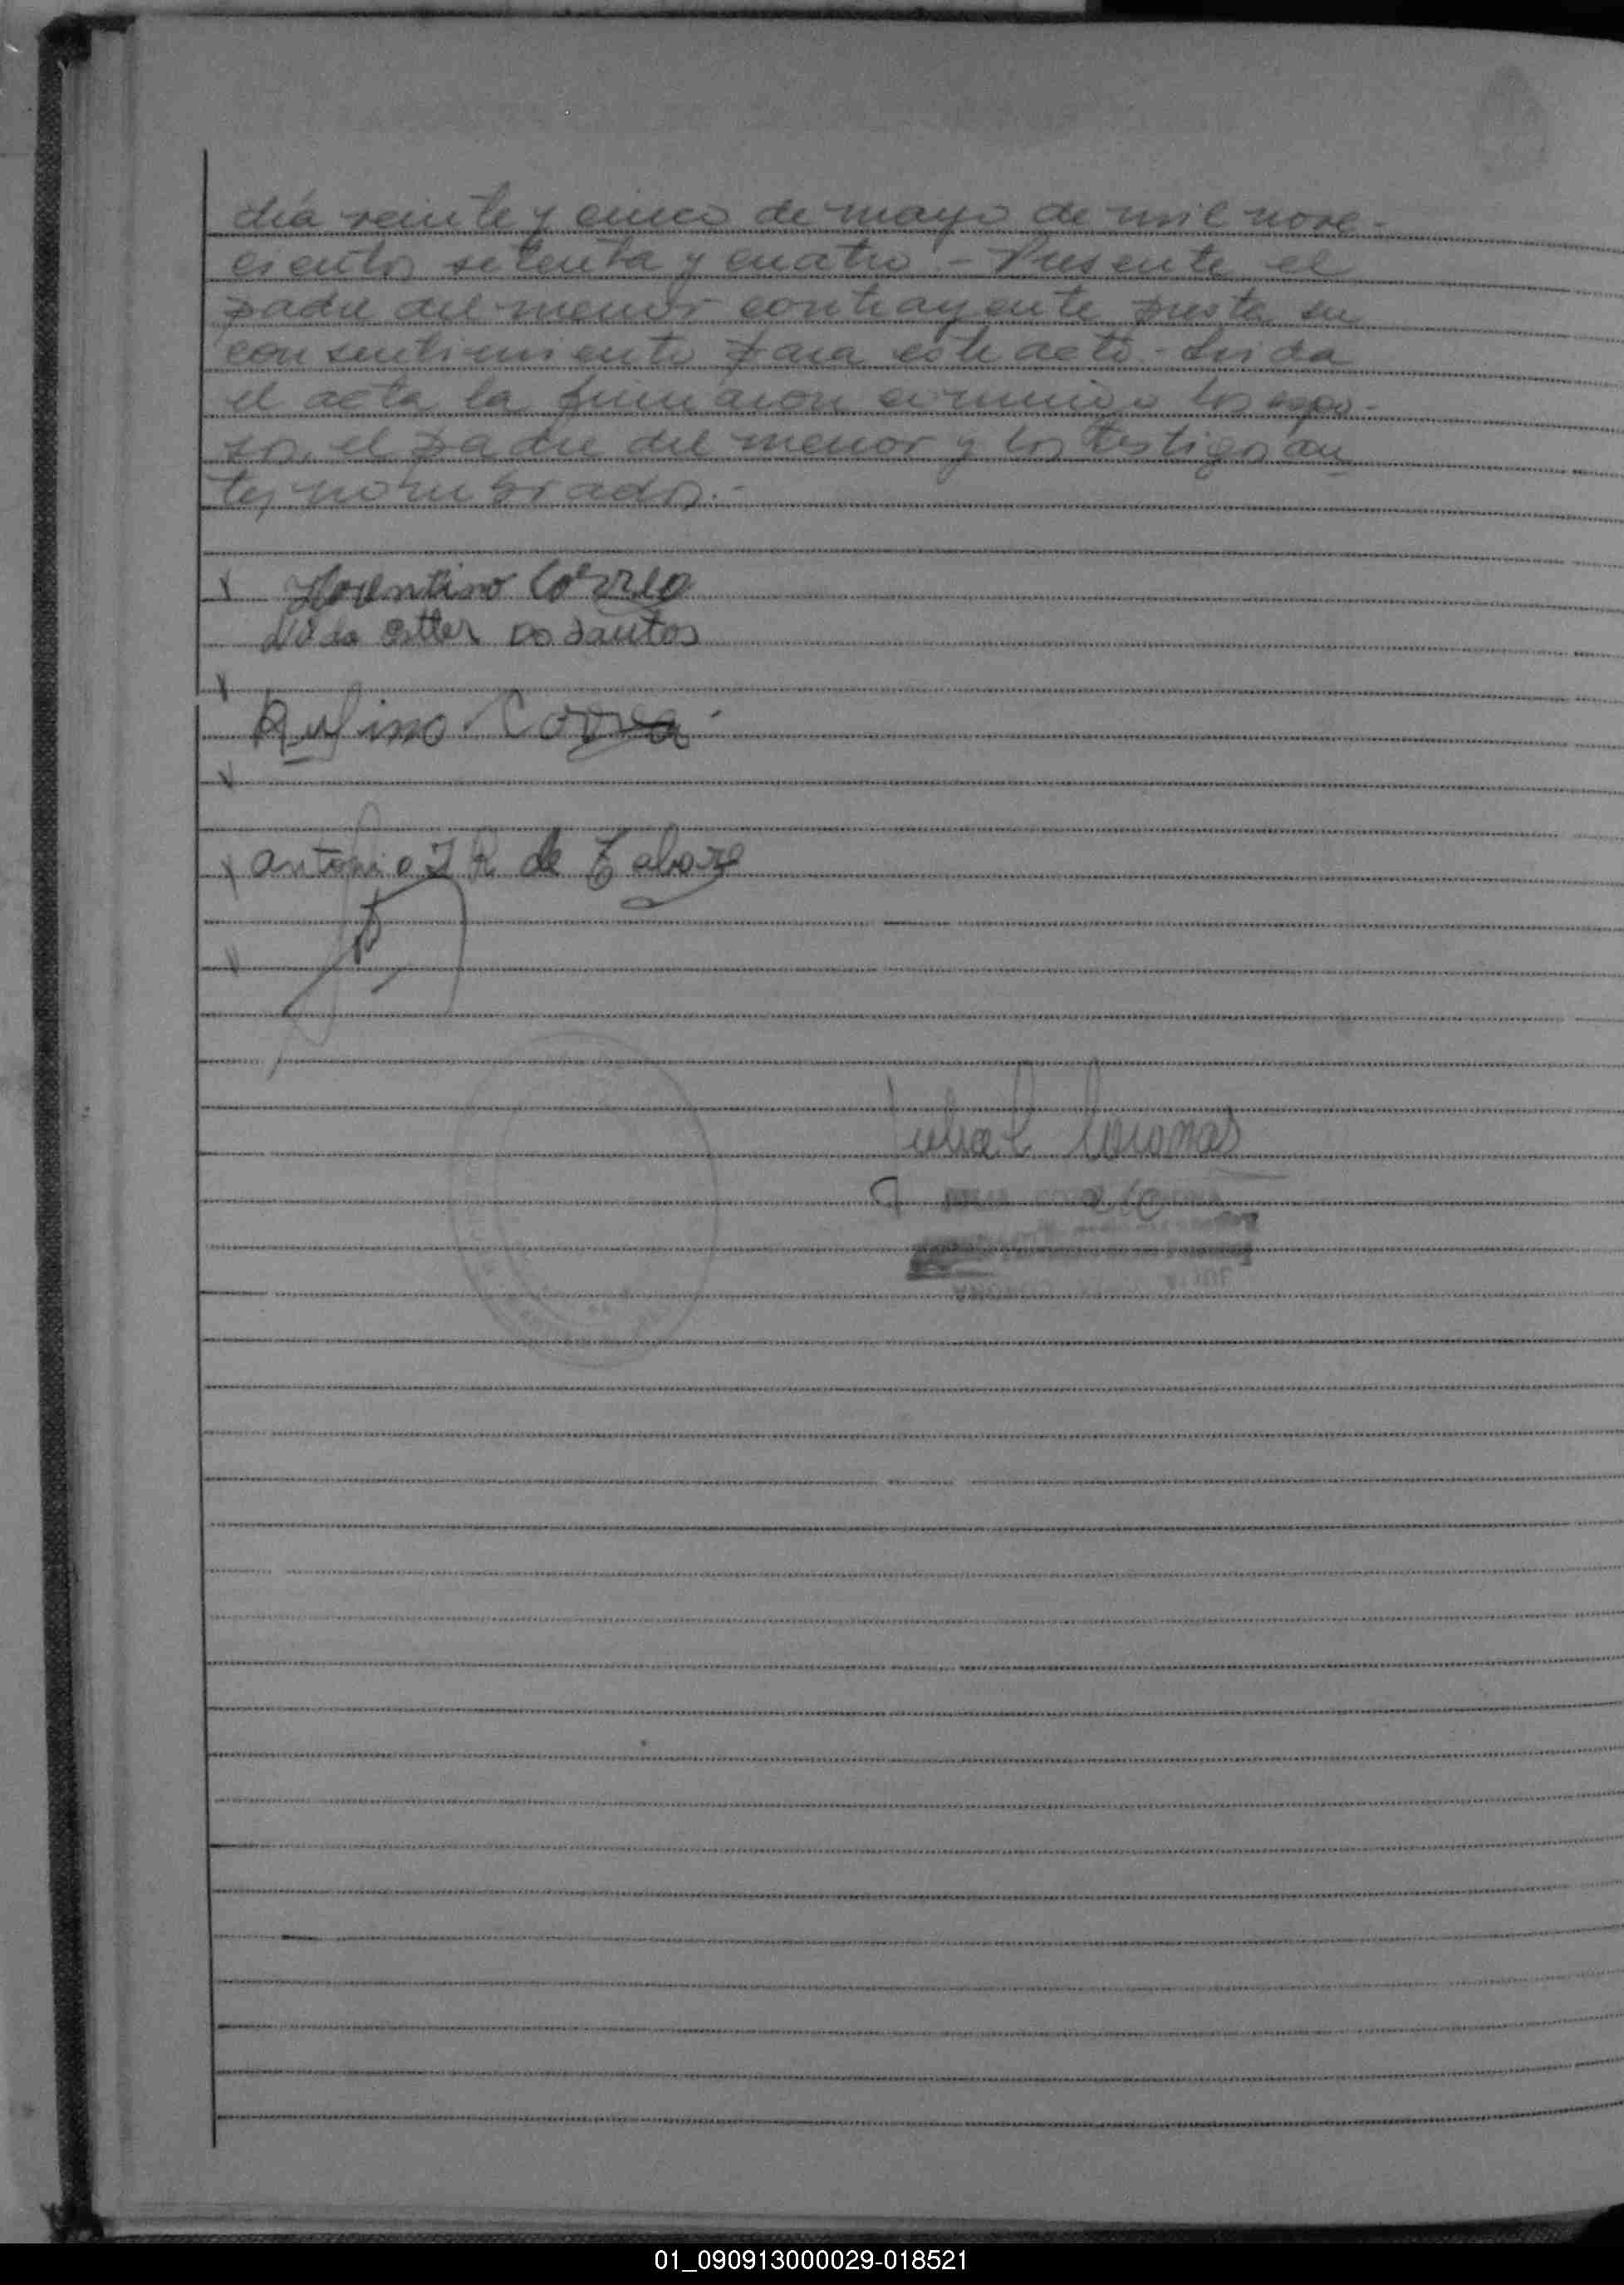 día veinte y cinco de mayo de mil nove-
cientos setenta y cuatro.- Presente el
padre del menor contrayente presta su
consentimiento para este acto.- Leída
el acta la firmaron conmigo los espo-
sos, el padre del menor y los testigos an
tes nombrados.-
Florentino Correa
Ester Do Santos
Rufino Correa
Antonio J R de
01_090913000029-018521